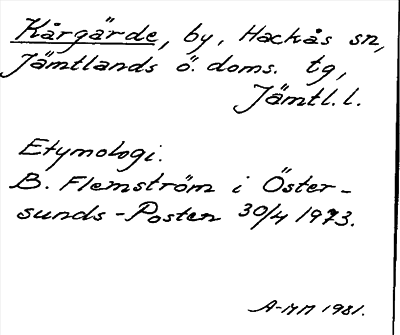 Kårgärde, by, Hackås sn,
Jämtlands ö. doms. tg,
Jämtl. l.
Etymologi.
B. Flemström i Öster-
sunds-Posten 30/4 1973.
A-MM 1981.